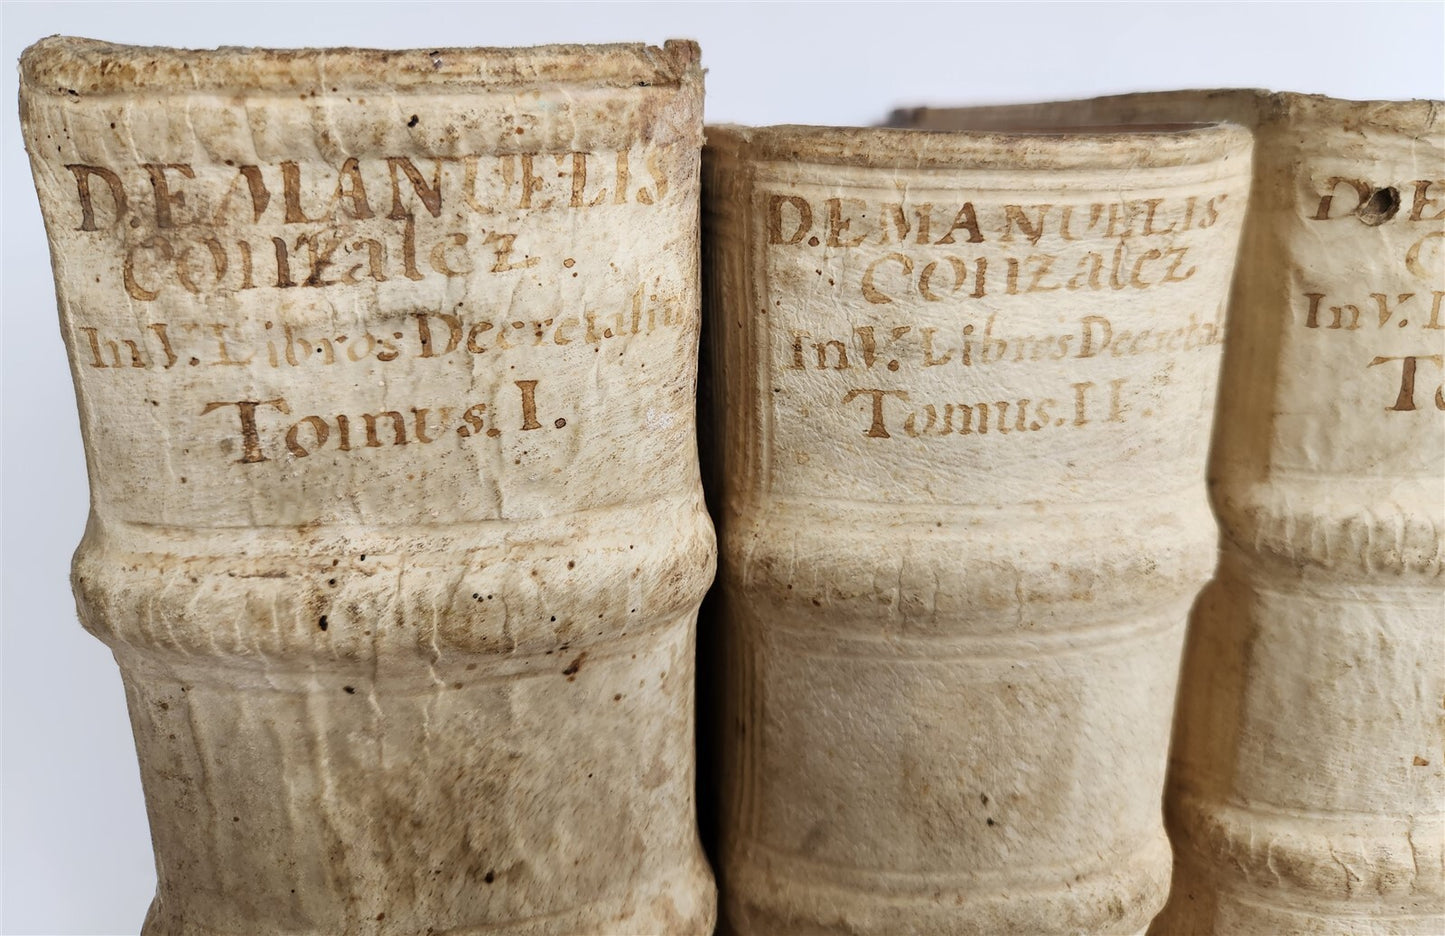 D. EMANUELIS
GONZALEZ.
In V. Libros Decretaliu
Tomus. I.
D. EMANUELIS
GONZALEZ
In V. Libros Decretal
Tomus. II.
D. E
In V. L
To